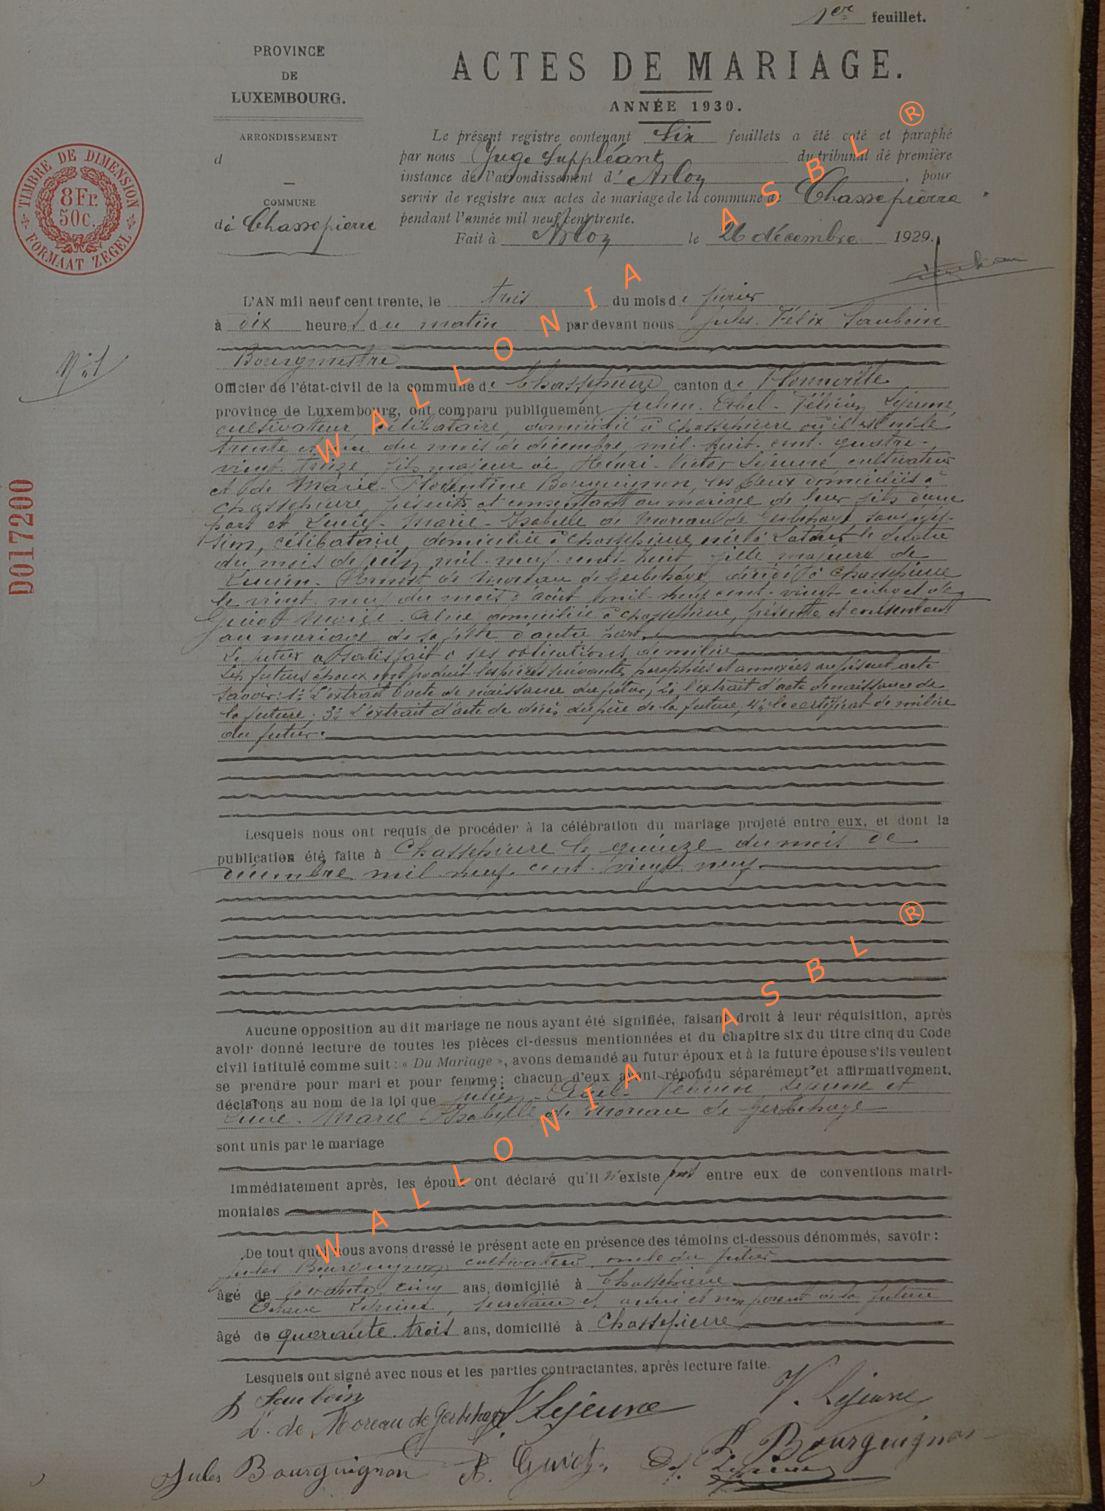 1er feuillet.
PROVINCE
DE
LUXEMBOURG.
ARRONDISSEMENT
d
COMMUNE
de Chassepierre
TIMBRE DE DIMENSION
8 Fr.
50 c.
FORMAAT ZEGEL
D017200
ACTES DE MARIAGE.
ANNÉE 1930.
Le présent registre contenant Six feuillets a été coté et paraphé
par nous Juge Suppléant du tribunal de première
instance de l'arrondissement d' Arlon, pour
servir de registre aux actes de mariage de la commune de Chassepierre
pendant l'année mil neuf cent trente.
Fait à Arlon le 26 décembre 1929.
N° 1
L'AN mil neuf cent trente, le trois du mois de
à dix heures du matin par devant nous Jules Félix Saubain
Bourgmestre
Officier de l'état-civil de la commune de Chassepierre canton de Florenville
province de Luxembourg, ont comparu publiquement Julien Lejeune
cultivateur, célibataire, domicilié à Chassepierre où il est né le
trente et un du mois de décembre mil huit cent quatre-
vingt treize, fils majeur de Henri Victor Lejeune, cultivateur
et de Marie Florentine Bourguignon, les deux domiciliés à
Chassepierre, présents et consentant au mariage de leur fils d'une
part et Lucie Marie Isabelle de Moreau de Gerbehaye, sans profes-
sion, célibataire, domiciliée à Chassepierre née à le
du mois de mil neuf cent huit fille majeure de
Lucien Ernest de Moreau de Gerbehaye, décédé à Chassepierre
le vingt neuf du mois d'août mil neuf cent vingt et de
Guiot Marie domiciliée à Chassepierre, présente et consentant
au mariage de sa fille d'autre part.
Le futur a satisfait à ses obligations de milice
Les futurs époux ont produit les pièces suivantes paraphées et annexées au présent acte
savoir: 1° L'extrait d'acte de naissance du futur; 2° l'extrait d'acte de naissance de
la future; 3° L'extrait d'acte de décès du père de la future, 4° le certificat de milice
du futur.
Lesquels nous ont requis de procéder à la célébration du mariage projeté entre eux, et dont la
publication été faite à Chassepierre le quinze du mois de
décembre mil neuf cent vingt neuf
Aucune opposition au dit mariage ne nous ayant été signifiée, faisant droit à leur réquisition, après
avoir donné lecture de toutes les pièces ci-dessus mentionnées et du chapitre six du titre cinq du Code
civil intitulé comme suit : « Du Mariage », avons demandé au futur époux et à la future épouse s'ils veulent
se prendre pour mari et pour femme ; chacun d'eux ayant répondu séparément et affirmativement,
déclarons au nom de la loi que Julien Lejeune et
Lucie Marie Isabelle de Moreau de Gerbehaye
sont unis par le mariage
Immédiatement après, les époux ont déclaré qu'il n'existe pas entre eux de conventions matri-
moniales
De tout quoi nous avons dressé le présent acte en présence des témoins ci-dessous dénommés, savoir :
Jules Bourguignon, cultivateur, oncle du futur
âgé de cinq ans, domicilié à Chassepierre
Lejeune, et non parent de la future
âgé de quarante trois ans, domicilié à Chassepierre
Lesquels ont signé avec nous et les parties contractantes, après lecture faite.
J. Saubain
L. de Moreau de Gerbehaye J. Lejeune V. Lejeune
Jules Bourguignon A. Guiot F. Bourguignon
WALLONIA ASBL ®
WALLONIA ASBL ®